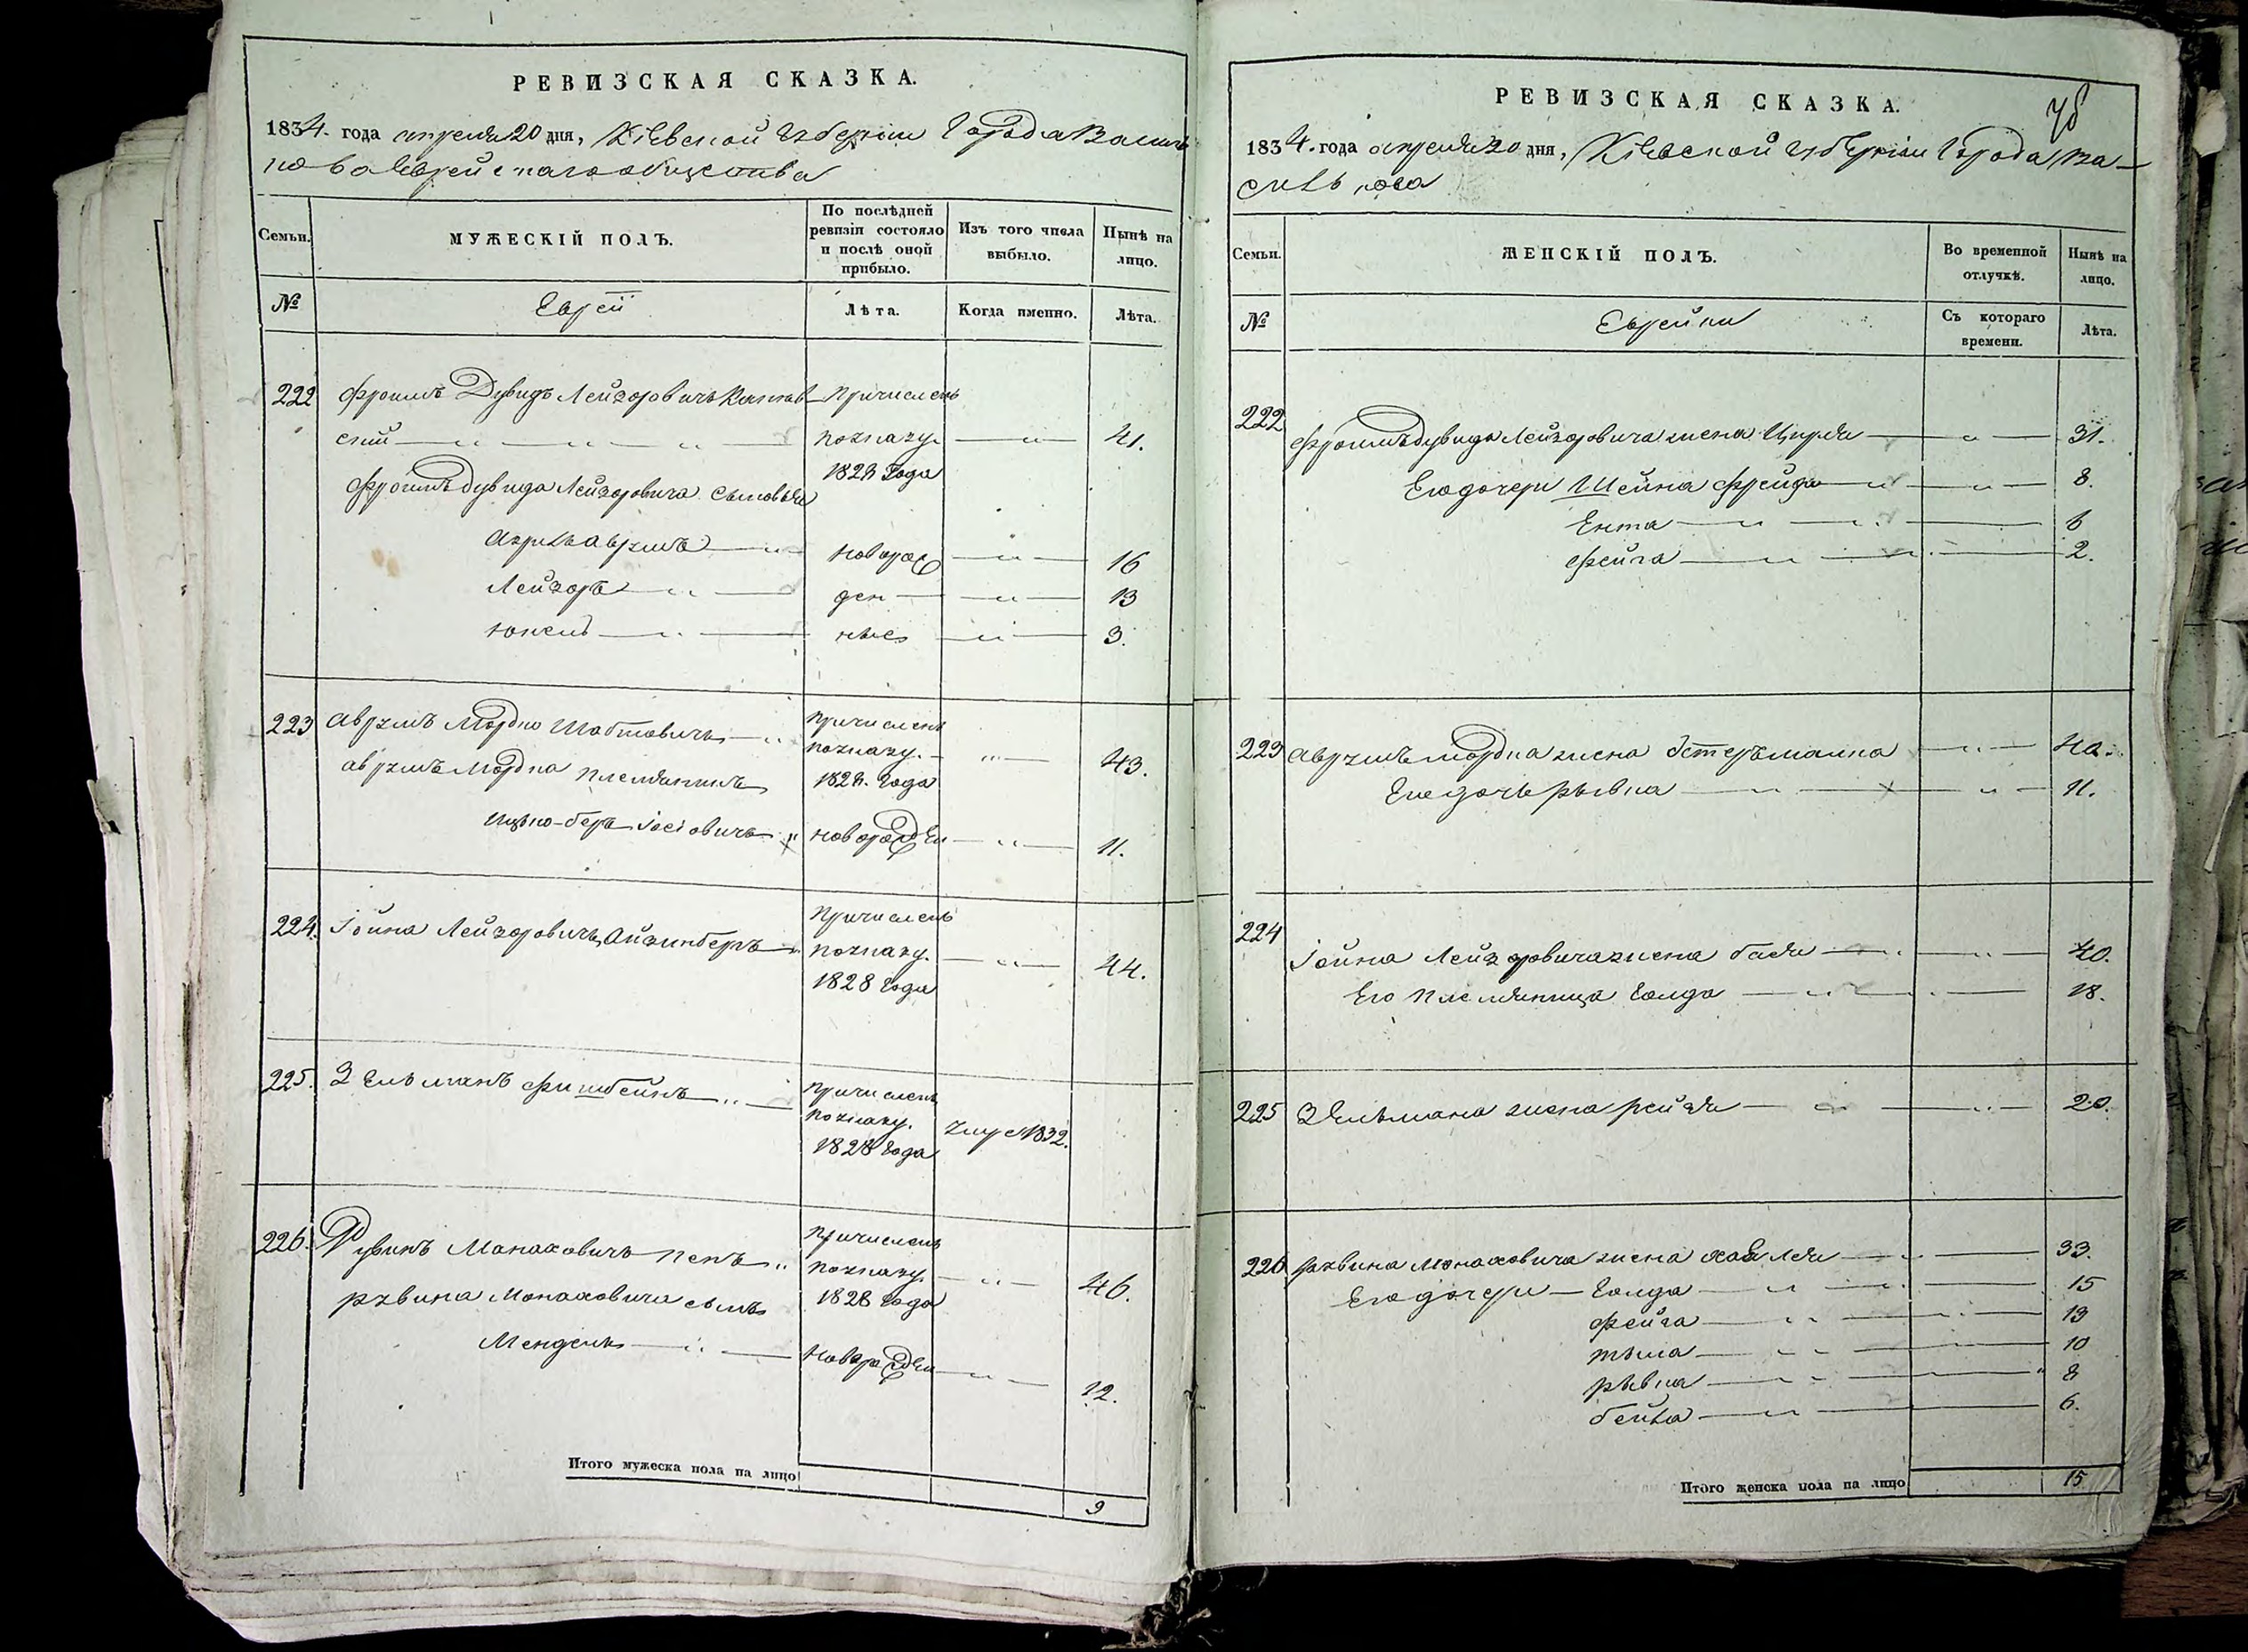 РЕВИЗСКАЯ СКАЗКА.
1834. года апреля 20 дня, Кіевской губерніи Города Василь
кова Еврейскаго общества
Семьи.
МУЖЕСКІЙ ПОЛЪ.
По послѣдней ревизіи состояло и послѣ оной прибыло.
Изъ того числа выбыло.
Нынѣ на лицо.
№
Евреи
Лѣта.
Когда именно.
Лѣта.
222 Фроимъ Дувидъ Лейзоровичъ причисленъ
ский по указу 41.
1828 Года
Фроимъ дувида Лейзоровича сыновья
Аврумъ новорож 16
Лейзоръ ден 13
юкель ные 3.
223 Аврумъ Мордко Шабтовичъ причисленъ
по указу. 43.
аврумъ Мордка племянникъ 1828. Года
Ицько-беръ Іосіовичъ новорожден 11.
224. Іойна Лейзоровичъ Айзинбергъ причисленъ
по указу. 44.
1828 Года
225. Зельманъ фишбейнъ причисленъ
по указу. умре 1832.
1828 Года
226. Рувинъ Манаховичъ причисленъ
по указу 46.
рувина Монаховича сынъ 1828 Года
Мендель новорожден 12.
Итого мужеска пола на лицо
9
РЕВИЗСКАЯ СКАЗКА.
1834. года апреля 20 дня, Кіевской губерніи Города Ва-
силькова
Семьи.
ЖЕНСКІЙ ПОЛЪ.
Во временной отлучкѣ.
Нынѣ на лицо.
№
Еврейки
Съ котораго времени.
Лѣта.
222 Фроимъ дувида Лейзоровича жена Цирля 31.
Его дочери Шейна фрейда 8.
Ента 6
фейга 2.
223 Аврумъ мордка жена Естеръ малка 40.
Его дочь рывка 11.
224 Іойна Лейзоровича жена бася 40.
Его племянница Голда 18.
225 Зельмана жена рейзя 20.
226 рувина Монаховича жена хая Лея 33.
Его дочери — Голда 15
фейга 13
10
рывка 8
бейла 6.
Итого женска пола на лицо 15